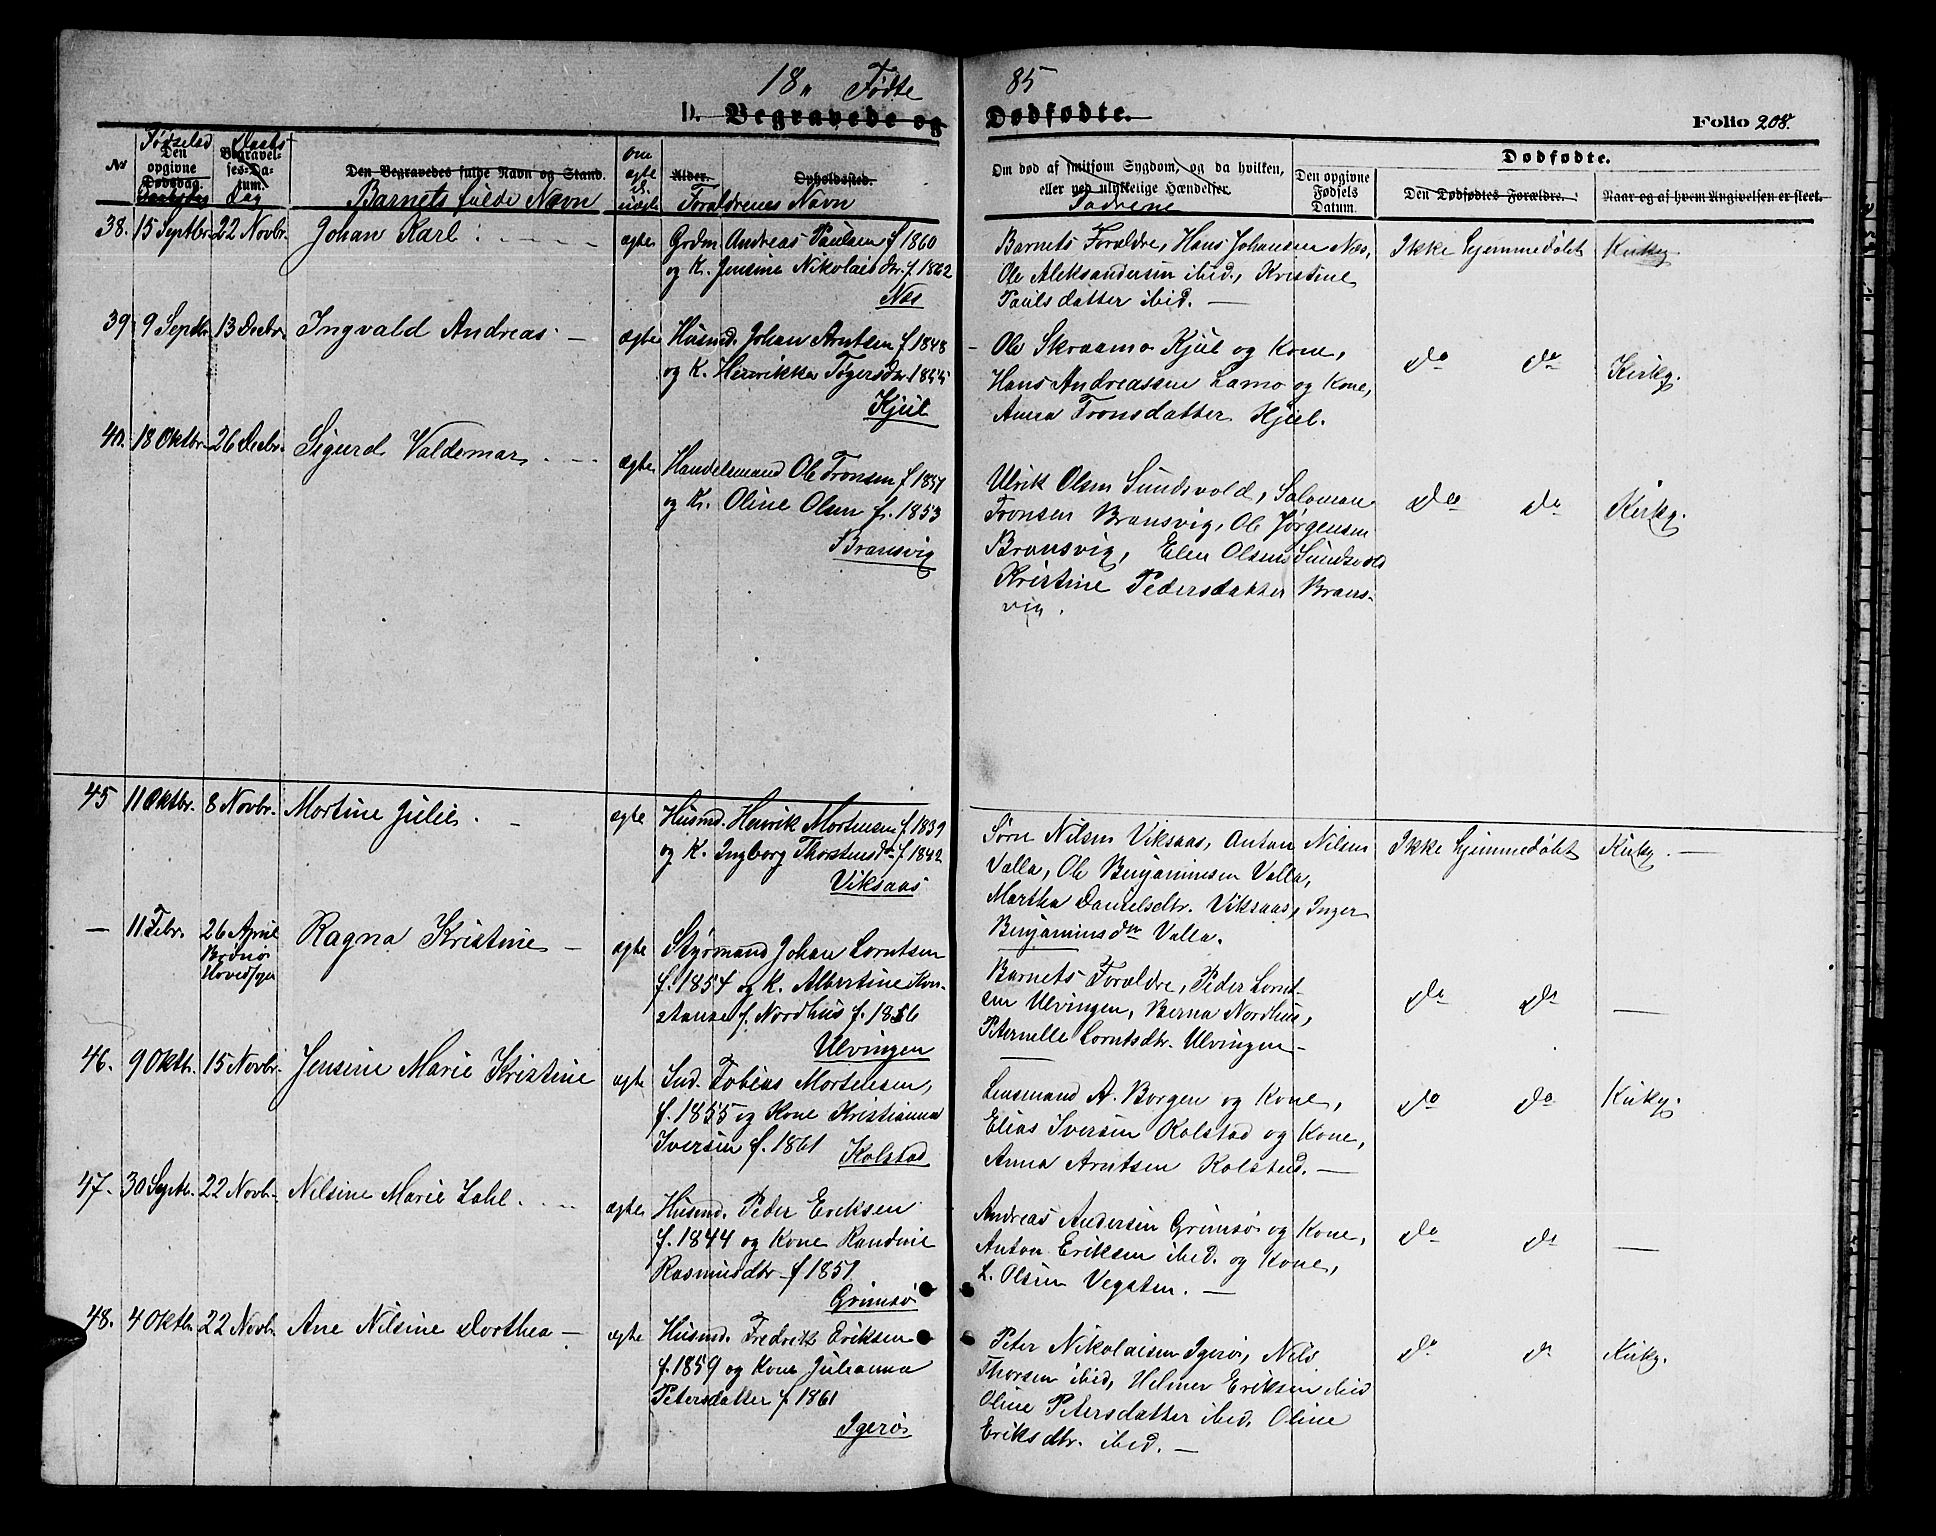 18 „ Fødte 85
D. Begravede og Dødfødte. Folio 208.
No Fødselsd Den opgivne Dødsdag. Daabs- Begravelses-Datum. Dag Den Begravedes fulde Navn og Stand. Barnets fulde Navn Om ægte el. uægte Alder. Opholdssted. Forældrenes Navn
Om død af smitsom Sygdom, og da hvilken, eller ved ulykkelige Hændelser. Fadrene Den opgivne Fødsels Datum. Dødfødte. Den Dødfødtes Forældre. Naar og af hvem Angivelsen er skeet.
38. 15 Septbr. 22 Novbr. Johan Karl ægte Grdm. Andreas Paulsen f 1860
og K. Jensine Nikolaisdtr. f. 1862
Næs
Barnets Forældre, Hans Johansen Næs, Ikke hjemmedøbt Kirkeg
Ole Aleksandersen ibid., Kristine
Paulsdatter ibid. —
39. 9 Septbr. 13 Decbr. Ingvald Andreas — ægte Husmd. Johan Arntsen f. 1848
og K. Henrikke Tøgersdtr.
Kjul
Ole Skraamo Kjul og Kone, do do Kirkg.
Hans Andreassen Lamo og Kone,
Anna Tronsdatter Kjul.
40. 18 Oktbr. 26 Decbr. Sigurd Valdemar ægte Handelsmand Ole Tronsen f 1851
og K. Oline Olsen f. 1853
Bransvig
Ulrik Olsen Sundsvold, Saloman do do Kirkg.
Tronsen Bransvig, Ole Jørgensen
Bransvig, Elen Olsens Sundsvold
Kristine Pedersdatter Brans-
vig.
45 11 Oktbr. 8 Novbr. Mortine Julie. — ægte Husmd. Henrik Mortensen f. 1839
og K. Ingborg Thorstensdtr f. 1842
Viksaas
Sørn Nilsen Viksaas, Anton Nilsen Ikke hjemmedøbt Kirkg. —
Valla, Ole Benjaminsen Valla,
Martha Danielsdtr. Viksaas, Inger
Benjaminsdtr Valla.
— 11 Febr. 26 April Brønø Hovedsogn Ragna Kristine — ægte Styrmand Johan Lorntsen
f. 1854 og K. Albertine Kon-
stanse f. Nordhus f. 1856
Ulvingen
Barnets Forældre, Peder Lornt- do do —
sen Ulvingen, Berna Nordhus,
Peternelle Lorntsdtr. Ulvingen —
46. 9 Oktbr. 15 Novbr. Jensine Marie Kristine ægte Ind. Tobias Mortensen,
f. 1855 og Kone Kristianna
Iversen f. 1861 Kolstad
Lensmand A. Borgen og Kone, do do Kirkg.
Elias Iversen Kolstad og Kone,
Anna Arntsen Kolstad. —
47. 30 Septbr. 22 Novbr. Nilsine Marie Zahl. ægte Husmd. Peder Eriksen
f. 1844 og Kone Randine
Rasmusdtr — f 1851.
Grimsø
Andreas Andersen Grimsø og Kone, do do —
Anton Eriksen ibid. og Kone,
L. Olsen Vegsten. —
48. 4 Oktbr. 22 Novbr. Ane Nilsine Dorthea — ægte Husmd. Fredrik Eriksen
f. 1859 og Kone Julianna
Petersdatter f 1861
Igerø
Peter Nikolaisen Igerø, Nils do do Kirkg.
Thorsen ibid, Helmer Eriksen ibid
Oline Petersdatter ibid. Oline
Eriksdtr. ibid. —